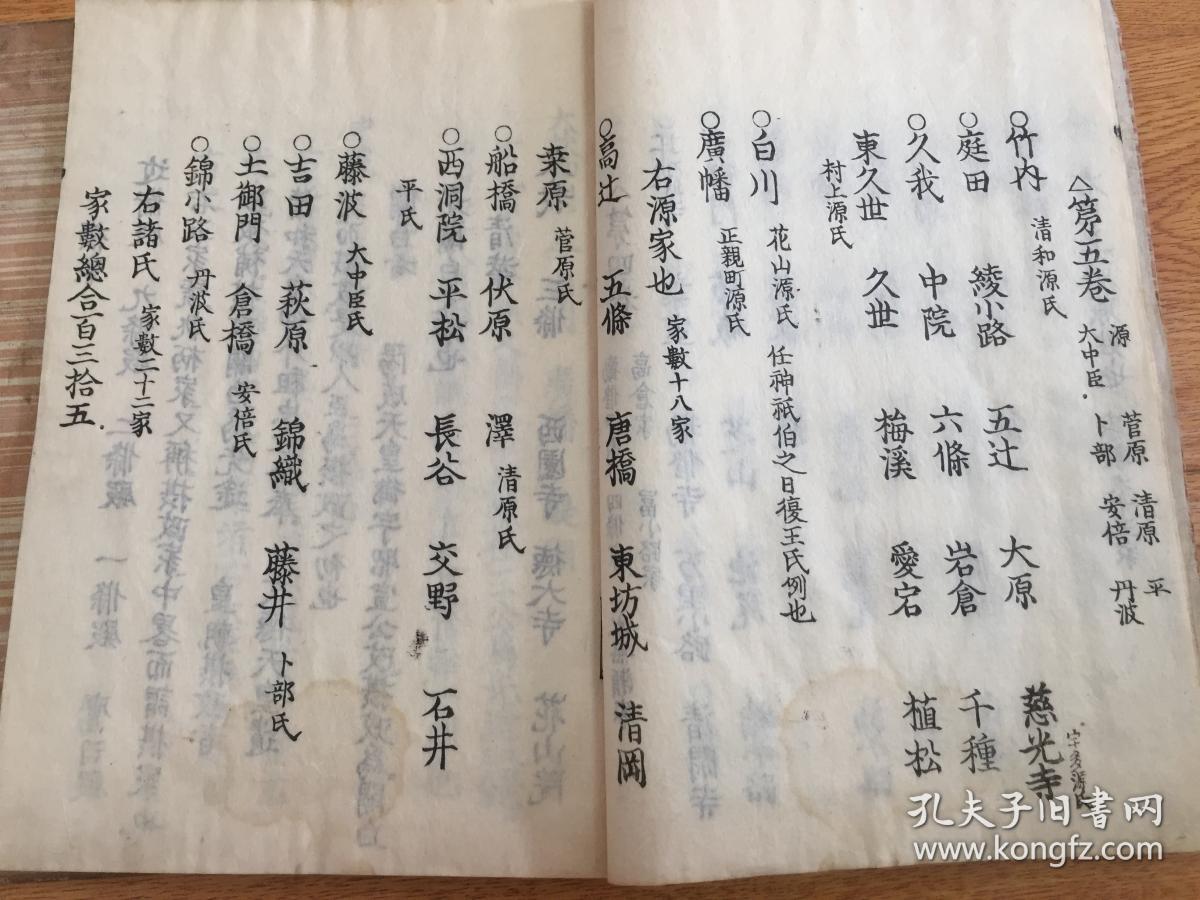 △第五卷 源 菅原 清原 平
大中臣 卜部 安倍 丹波
○竹内 清和源氏
○庭田 綾小路 五辻 大原 慈光寺 宇多源氏
○久我 中院 六條 岩倉 千種
東久世 久世 梅溪 愛宕 植松
村上源氏
○白川 花山源氏 任神祇伯之日復王氏例也
○廣幡 正親町源氏
右源家也 家數十八家
○高辻 五條 唐橋 東坊城 清岡
桒原 菅原氏
○船橋 伏原 澤 清原氏
○西洞院 平松 長谷 交野 石井
平氏
○藤波 大中臣氏
○吉田 萩原 錦織 藤井 卜部氏
○土御門 倉橋 安倍氏
○錦小路 丹波氏
右諸氏 家數二十二家
家數總合百三拾五
孔夫子旧书网
www.kongfz.com